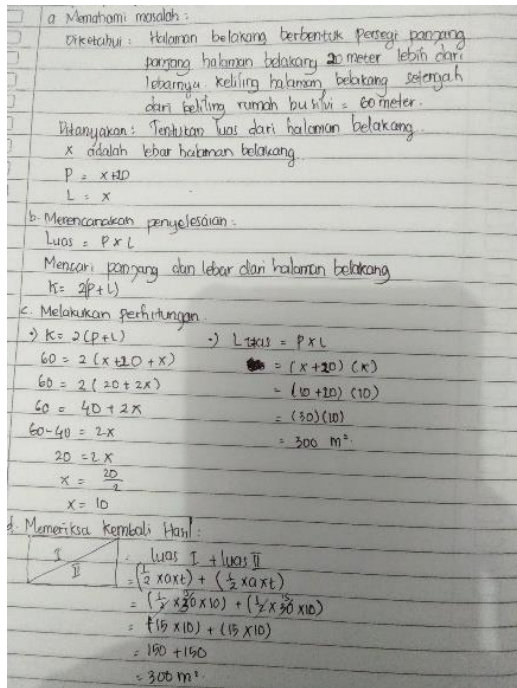 a. Memahami masalah :
Diketahui : Halaman belakang berbentuk Persegi panjang
panjang halaman belakang 20 meter lebih dari
lebarnya. Keliling halaman belakang setengah
dari keliling rumah bu silvi = 60 meter.
Ditanyakan : Tentukan luas dari halaman belakang.
x adalah lebar halaman belakang
P = x+20
L = x
b. Merencanakan penyelesaian :
Luas = P x L
Mencari panjang dan lebar dari halaman belakang
K = 2(P+L)
c. Melakukan perhitungan
•) K = 2(P+L)
60 = 2(x+20+x)
60 = 2(20+2x)
60 = 40+2x
60-40 = 2x
20 = 2x
x = 20/2
x = 10
•) Luas = P x L
= (x+20) (x)
= (10+20) (10)
= (30)(10)
= 300 m².
d. Memeriksa kembali Hasil :
I
II
= luas I + luas II
= (1/2 x a x t) + (1/2 x a x t)
= (1/2 x 30 x 10) + (1/2 x 30 x 10)
= (15 x 10) + (15 x 10)
= 150 + 150
= 300 m².